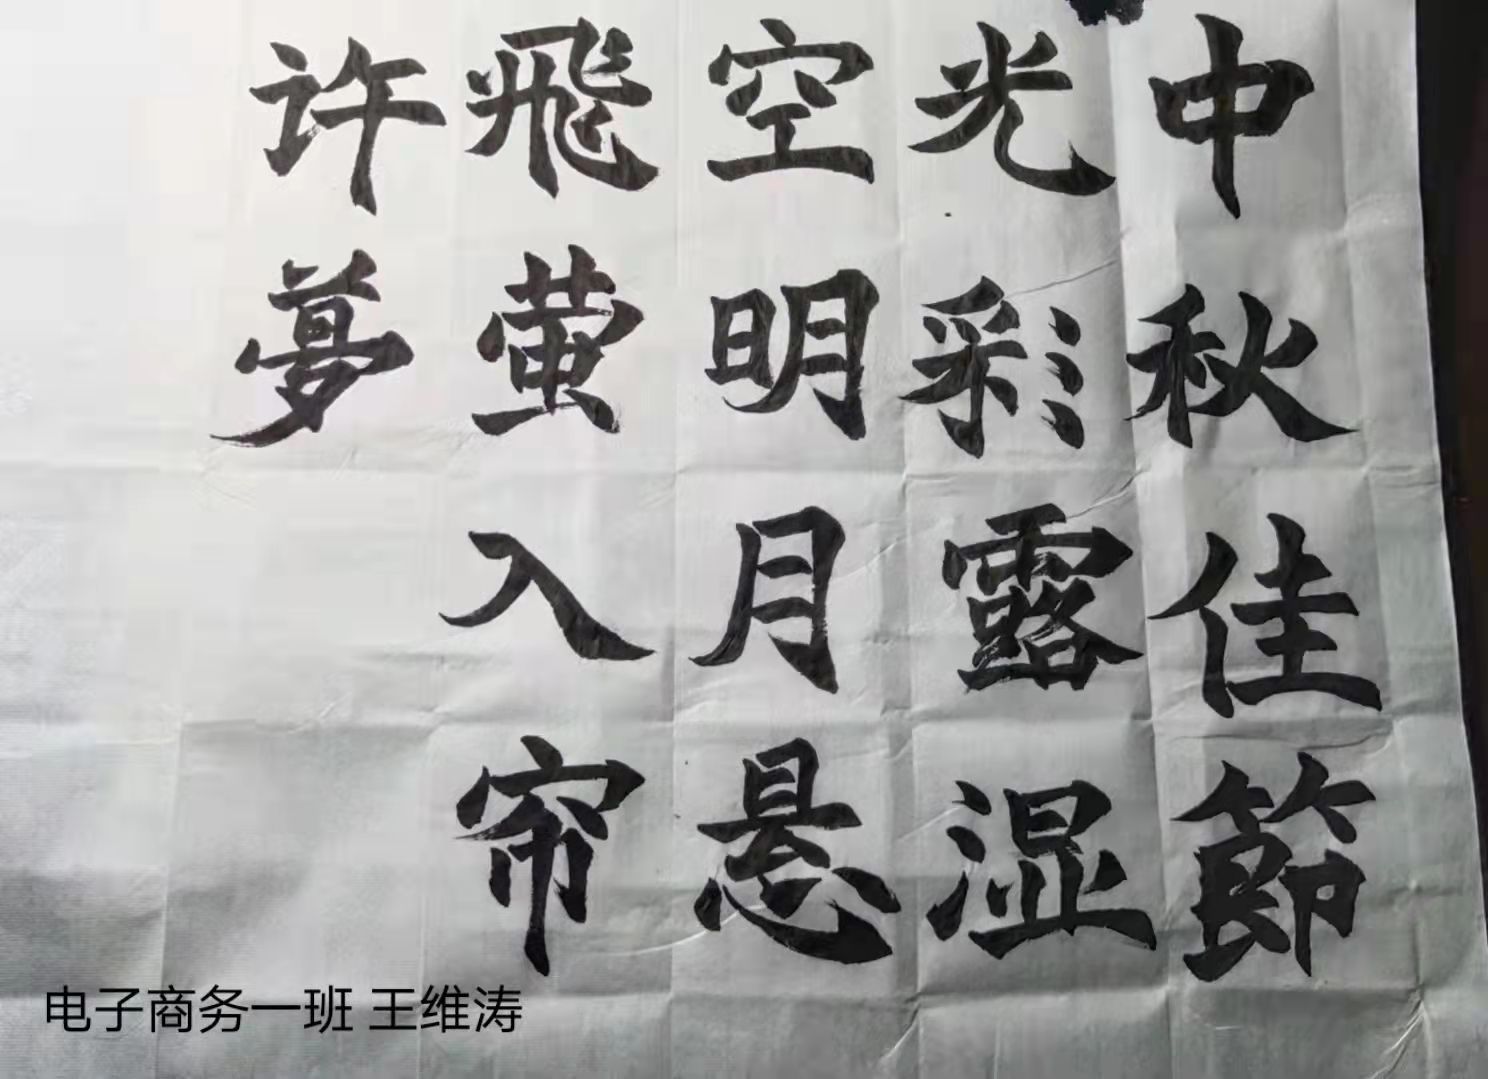 中秋佳節
光彩露湿
空明月悬
飛萤入帘
许夢
电子商务一班 王维涛